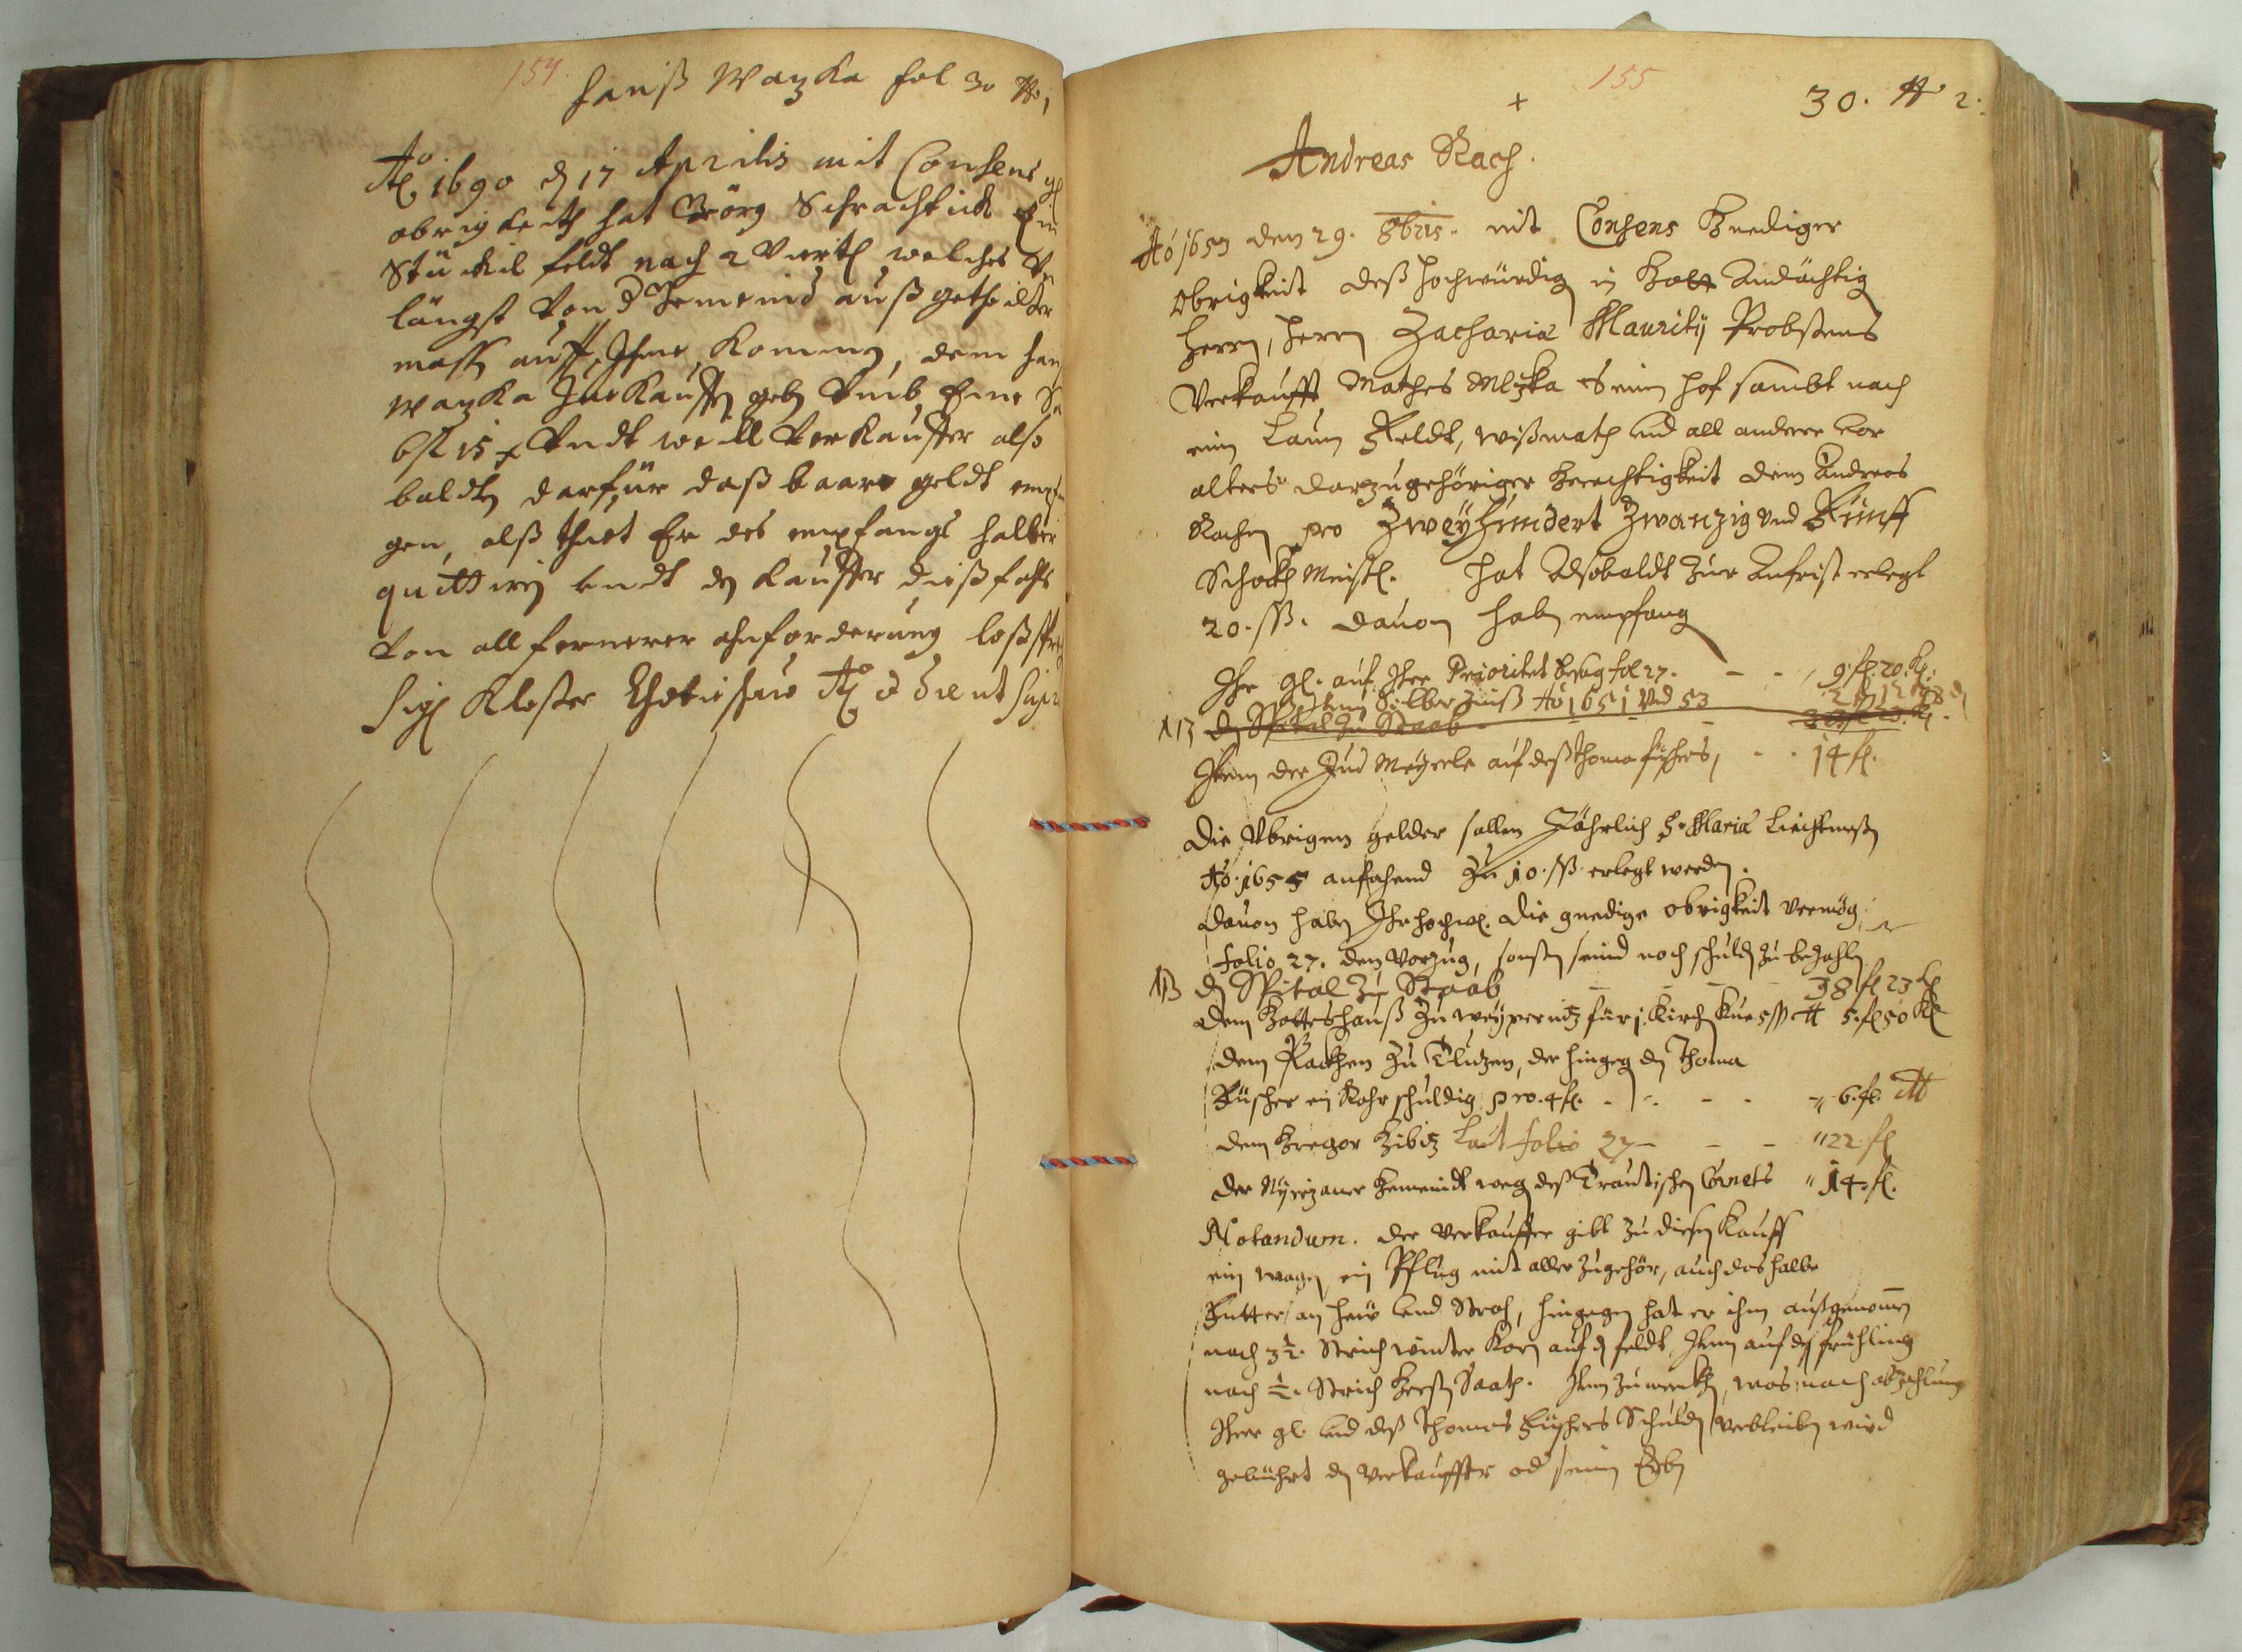 154.
Hanß Wazka fol 30 No 1
Ao 1690 den 17 Aprilis mit Consens gl
obrigkeith hat Görg Schrachtick Ein
Stückil feldt nach 2 Viertl welches
längst von d Gemeind außgetheilter
massen auff Ihme Kommen, dem Hanß
Wazka Zuekauffen geben Vmb Eine
6 fl 15 x Vndt weill Verkauffer also
baldten darfür daß baare geldt empfan
gen, alß thuet Er des empfangs halber
quittiren vndt den Kauffer dießfahls
von all fernerer ahnforderung loß
Sigl Kloster Chotieschau Ao et die ut supra
155
30. No 2.
Andreas Rach.
Ao 1653 den 29. 8bris. mit Consens Gnediger
Obrigkeit deß Hochwürdig in Gott Andächtig
Herrn, Herrn Zachariæ Maurity Probstens
Verkaufft Mathes Mlzka Seinen Hof sambt nach
ein Laun Feldt, wißmath und all anderer vor
alters darzugehöriger Gerechtigkeit dem Andreas
Rachen pro Zweyhundert Zwanzig und Fünff
Schockh Meisl. Hat Alsobaldt zur Anfrist erlegt
20. ß. dauon haben empfang
Ihr gl. auf Ihre Prioritet besag fol 27. - - 9 fl. 20. Kr.
Item Silberzinß Ao 1651 und 53
NB den Spital zu Staab
Item der Jud Meyerle auf deß Thoma fischers, - - 14 fl.
Die Vbrigen gelder sollen Jährlich z. Mariæ Liechtmeß
Ao. 1655 anfahend zu 10. ß erlegt werden.
dauon haben Ihr hochw. die gnedige obrigkeit vermög
folio 27. den Vorzug, sonsten seind noch schulden zu bezahlen
NB den Spital zu Staab - - - - 38 fl 23 Kr
dem Gotteshauß zu Weypernitz für 1. Kirch Kue 5 ß 5. fl 50 Kr
dem Rackhen zu Tluzen, der hingegen den Thoma
Füscher ein Rohr schuldig pro. 4 fl. - - - - 6. fl.
dem Gregor Zibiz Laut folio 27 - - - 22 fl
der Nyrzaner Gemeindt weg deß Trautischen Cornets 14. fl.
Notandum. der Verkauffer gibt zu diesen Kauff
ein wagen ein Pflug mit aller zugehör, auch das halbe
Futter an Heu und Stroh, hingegen hat er ihm außgenommen
nach 3½. Strich winter Korn auf den feldt, Item auf den frühling
nach ½. Strich Gersten Saath. Item zumerckhen, was nach abzahlung
Ihrer gl. und deß Thomas Füschers Schulden verbleiben wird
gebührt den Verkauffer od seinen Erben